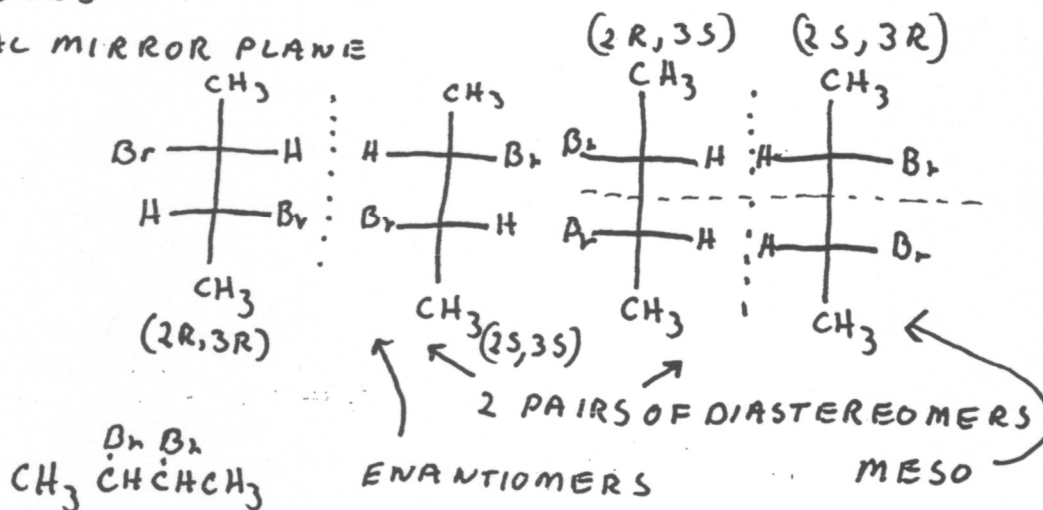 AL MIRROR PLANE
(2R, 3S) (2S, 3R)
CH3 CH3 CH3 CH3
Br H H Br Br H H Br
H Br Br H Br H H Br
CH3 CH3 CH3 CH3
(2R,3R) (2S,3S)
2 PAIRS OF DIASTEREOMERS
Br Br
CH3 CHCHCH3 ENANTIOMERS MESO